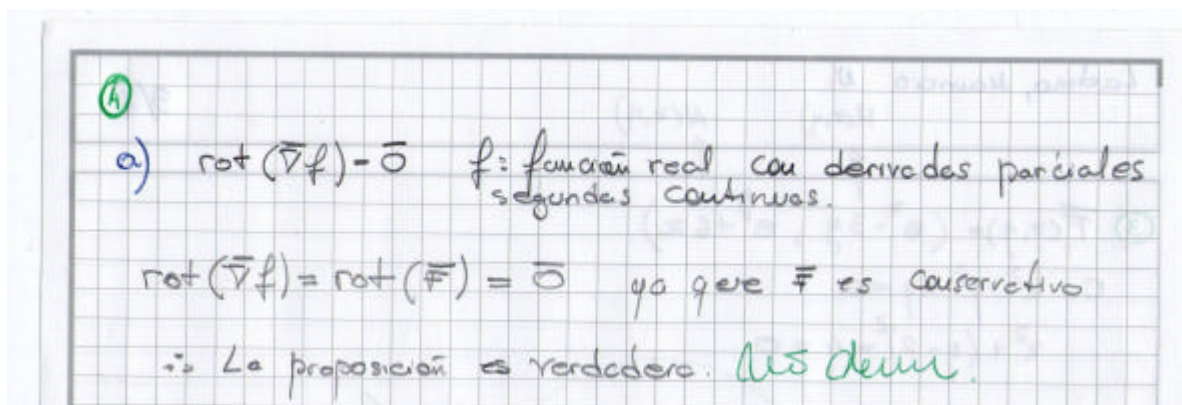 4
a) rot (∇̄f) = 0̄ f: función real con derivadas parciales
segundas continuas.
rot (∇̄f) = rot (F̄) = 0̄ ya que F̄ es conservativo
∴ La proposición es verdadera. No dem.